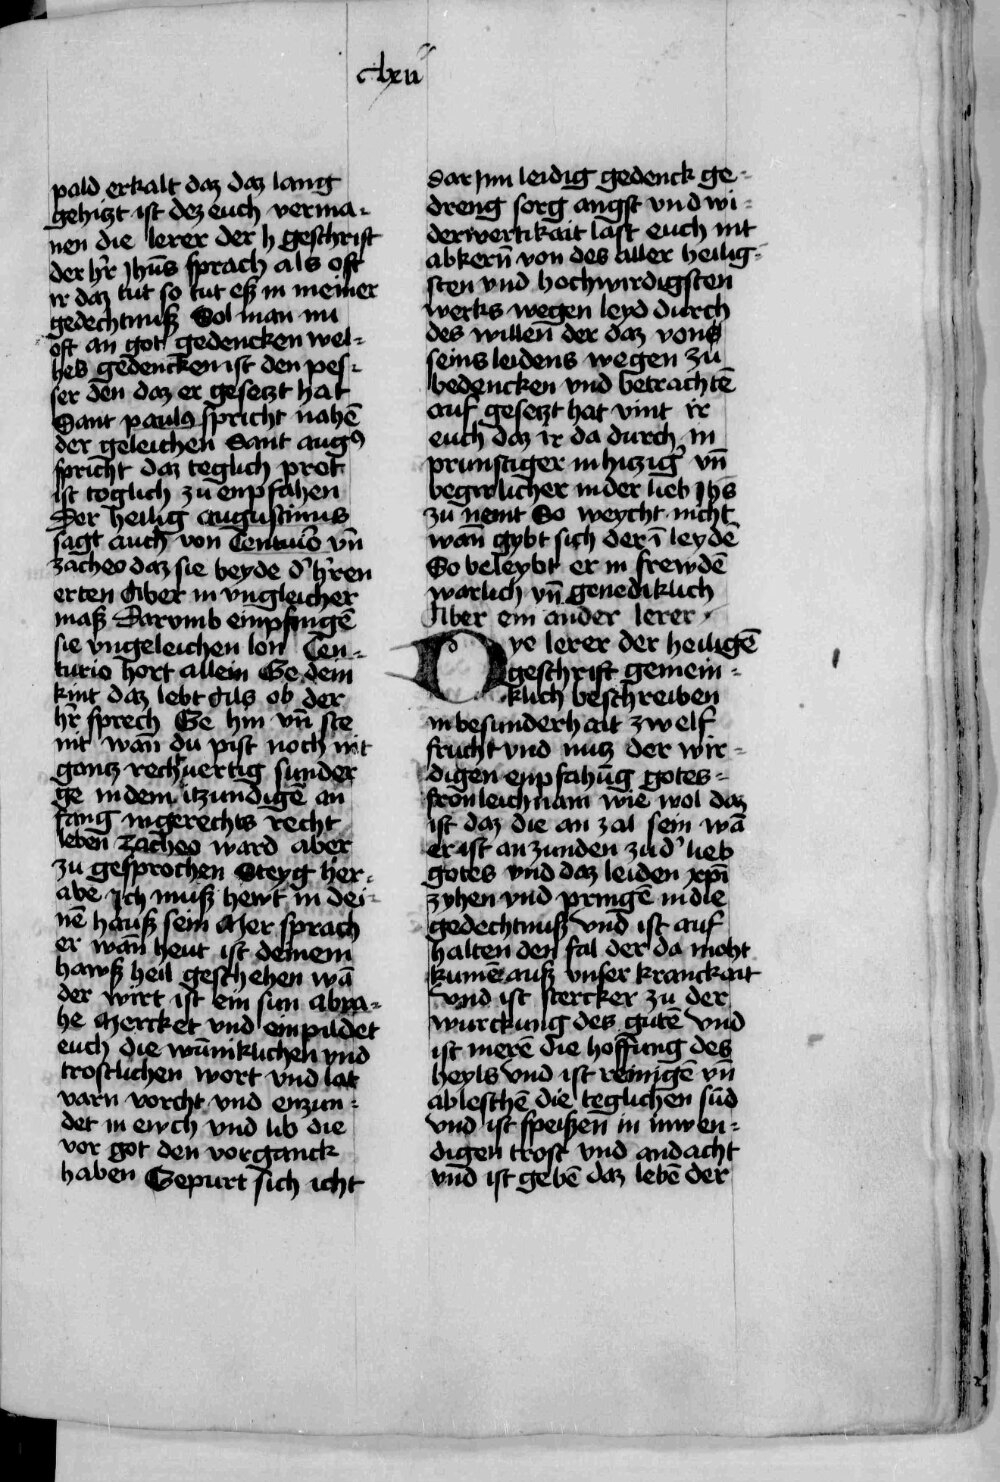 clxii
pald erkalt daz daz lang
gehitzt ist dez euch verma-
nen die lerer der h geschrift
der hr̄ Jhūs sprach als oft
ir daz tut so tut eß in meiner
gedechtnuß Sol man nu
oft an got gedencken wel-
hes gedencken ist den pes-
ser den daz er gesetzt hat
Sant paulꝯ spricht nahē
der geleichen Sant augꝯ
spricht daz teglich prot
ist toglich zu enpfahen
Der heilig augustinus
sagt auch von Centurio vn̄
zacheo daz sie beyde dˀ hr̄en
erten Aber in vngleicher
maß Darvmb empfingē
sie vngeleichen lon Cen-
turio hort allein Ge dein
kint daz lebt Als ob der
hr̄ sprech Ge hin vn̄ ste
nit wan̄ du pist noch nit
gantz rechvertig sunder
ge in dem itzundigē an
fang ingerechts recht
leben Zacheo ward aber
zu gesprochen Steyg her-
abe Ich muß hewt in dei-
nē hauß sein Mer sprach
er wan̄ heut ist deinem
hawß heil geschehen wā
der wirt ist ein sun abra-
he Mercket vnd einpildet
euch die wūniklichen vnd
trostlichen wort vnd lat
varn vorcht vnd enzun-
det in ewch vnd lib die
vor got den vorganck
haben Gepurt sich icht
darJnn leidig gedenck ge-
dreng sorg angst vnd wi-
derwertikait last euch nit
abkern̄ von des aller heilig-
sten vnd hochwirdigsten
werks wegen leyd durch
des willen̄ der daz vons
seins leidens wegen zu
bedencken vnd betrachtē
auf gesetzt hat vint ir
euch daz ir da durch in
prunstiger in hitzigˀ vn̄
begirlicher in der lieb Jhs
zu nemt So weycht nicht
wan̄ gybt sich der ī leydē
So beleybt er in frewdē
warlich vn̄ genediklich
Aber ein ander lerer
Dye lerer der heiligē
geschrift gemein-
klich beschreiben
in besunderhait zwelf
frucht vnd nutz der wir-
digen enpfahūg gotes-
fronleichnam wie wol daz
ist daz die an zal sein wā
er ist anzunden zu dˀ lieb
gotes vnd daz leiden xp̄i
zyhen vnd pringē in die
gedechtnuß vnd ist auf
halten den fal der da mocht
kumē auß vnser kranckait
vnd ist stercker zu der
wurckung des gutē vnd
ist merē die hoffung des
heyls vnd ist reinigē vn̄
ableschē die teglichen sūd
vnd ist speißen̄ in inwen-
digen trost vnd andacht
vnd ist gebē daz lebē der